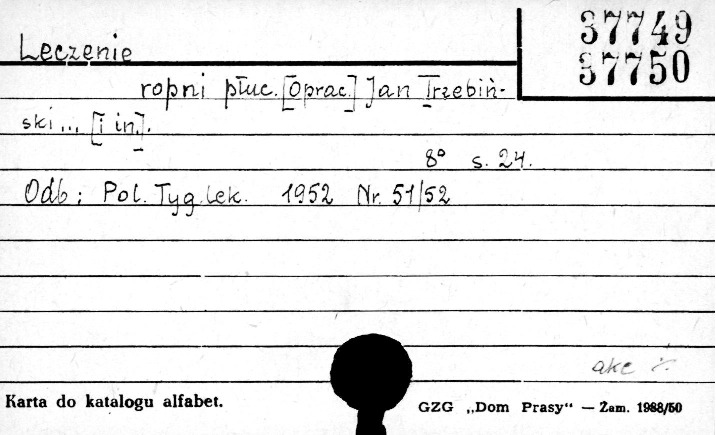 37749
37750
Leczenie
ropni płuc. [Oprac.] Jan Trzebiń-
ski ... [i in.].
8° s. 24.
Odb: Pol. Tyg. lek. 1952 Nr. 51/52
akc
Karta do katalogu alfabet.
GZG „Dom Prasy“ — Zam. 1988/50